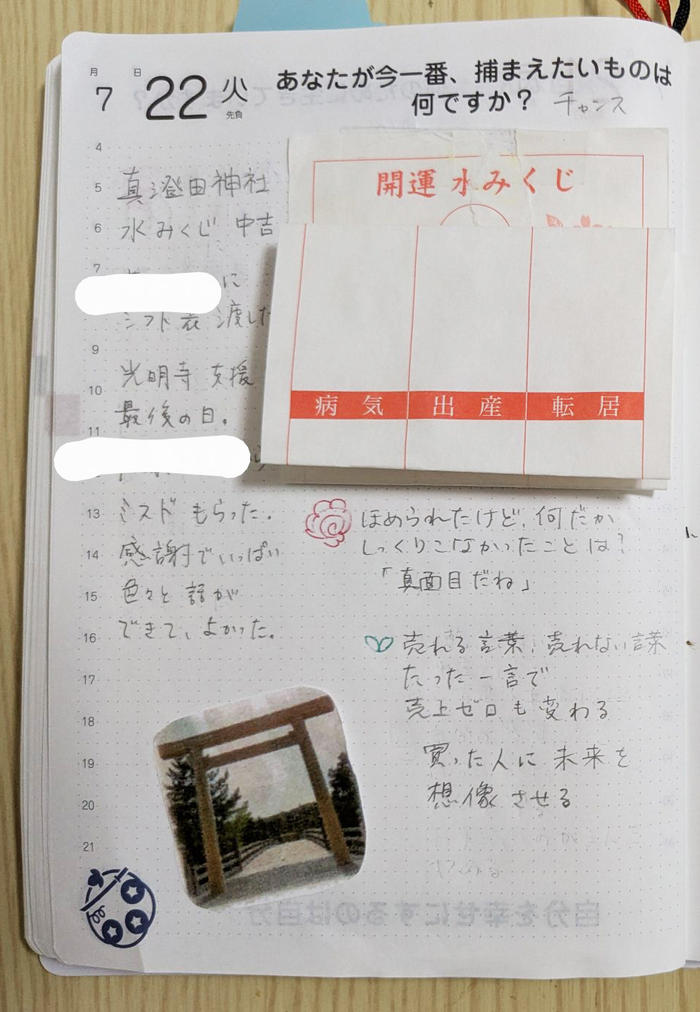 月
7
日
22
火
先負
あなたが今一番、捕まえたいものは
何ですか？
チャンス
4
5
6
7
9
10
11
13
14
15
16
17
18
19
20
21
真澄田神社
水みくじ 中吉
に
シフト表 渡した
光明寺 支援
最後の日。
ミスドもらった。
感謝でいっぱい
色々と話が
できて、よかった。
開運水みくじ
病気
出産
転居
ほめられたけど、何だか
しっくりこなかったことは?
「真面目だね」
売れる言葉、売れない言葉
たった一言で
売上ゼロも変わる
買った人に未来を
想像させる